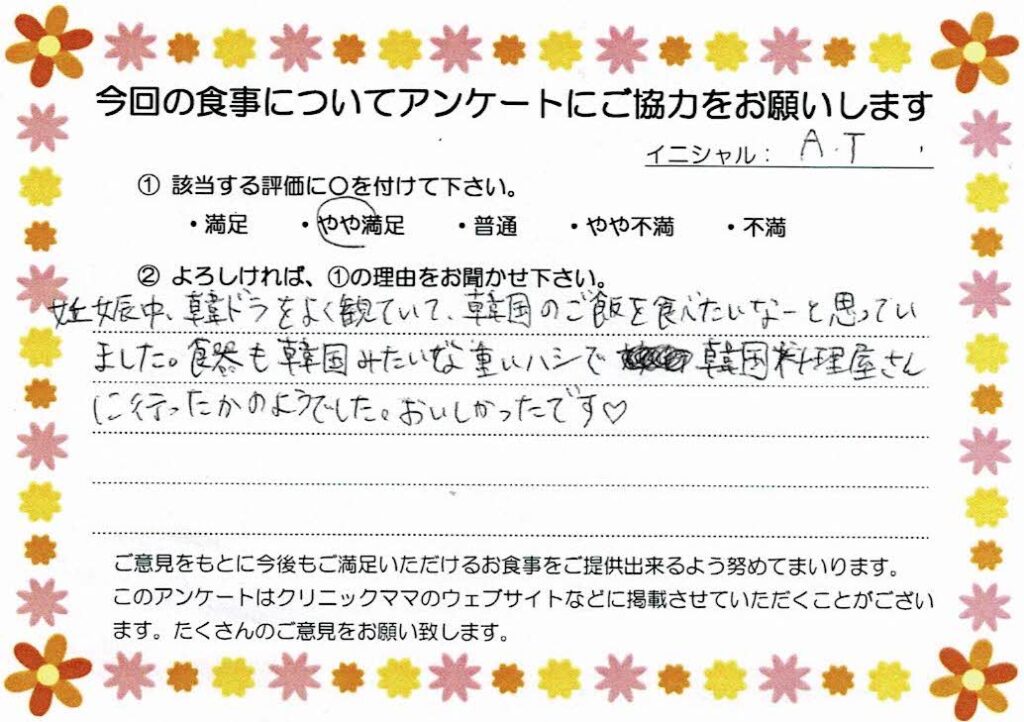 今回の食事についてアンケートにご協力をお願いします
イニシャル： A.T
① 該当する評価に〇を付けて下さい。
・満足 ・やや満足 ・普通 ・やや不満 ・不満
② よろしければ、①の理由をお聞かせ下さい。
妊娠中、韓ドラをよく観ていて、韓国のご飯を食べたいなーと思ってい
ました。食器も韓国みたいな重いハシで 韓国料理屋さん
に行ったかのようでした。おいしかったです♡
ご意見をもとに今後もご満足いただけるお食事をご提供出来るよう努めてまいります。
このアンケートはクリニックママのウェブサイトなどに掲載させていただくことがござい
ます。たくさんのご意見をお願い致します。